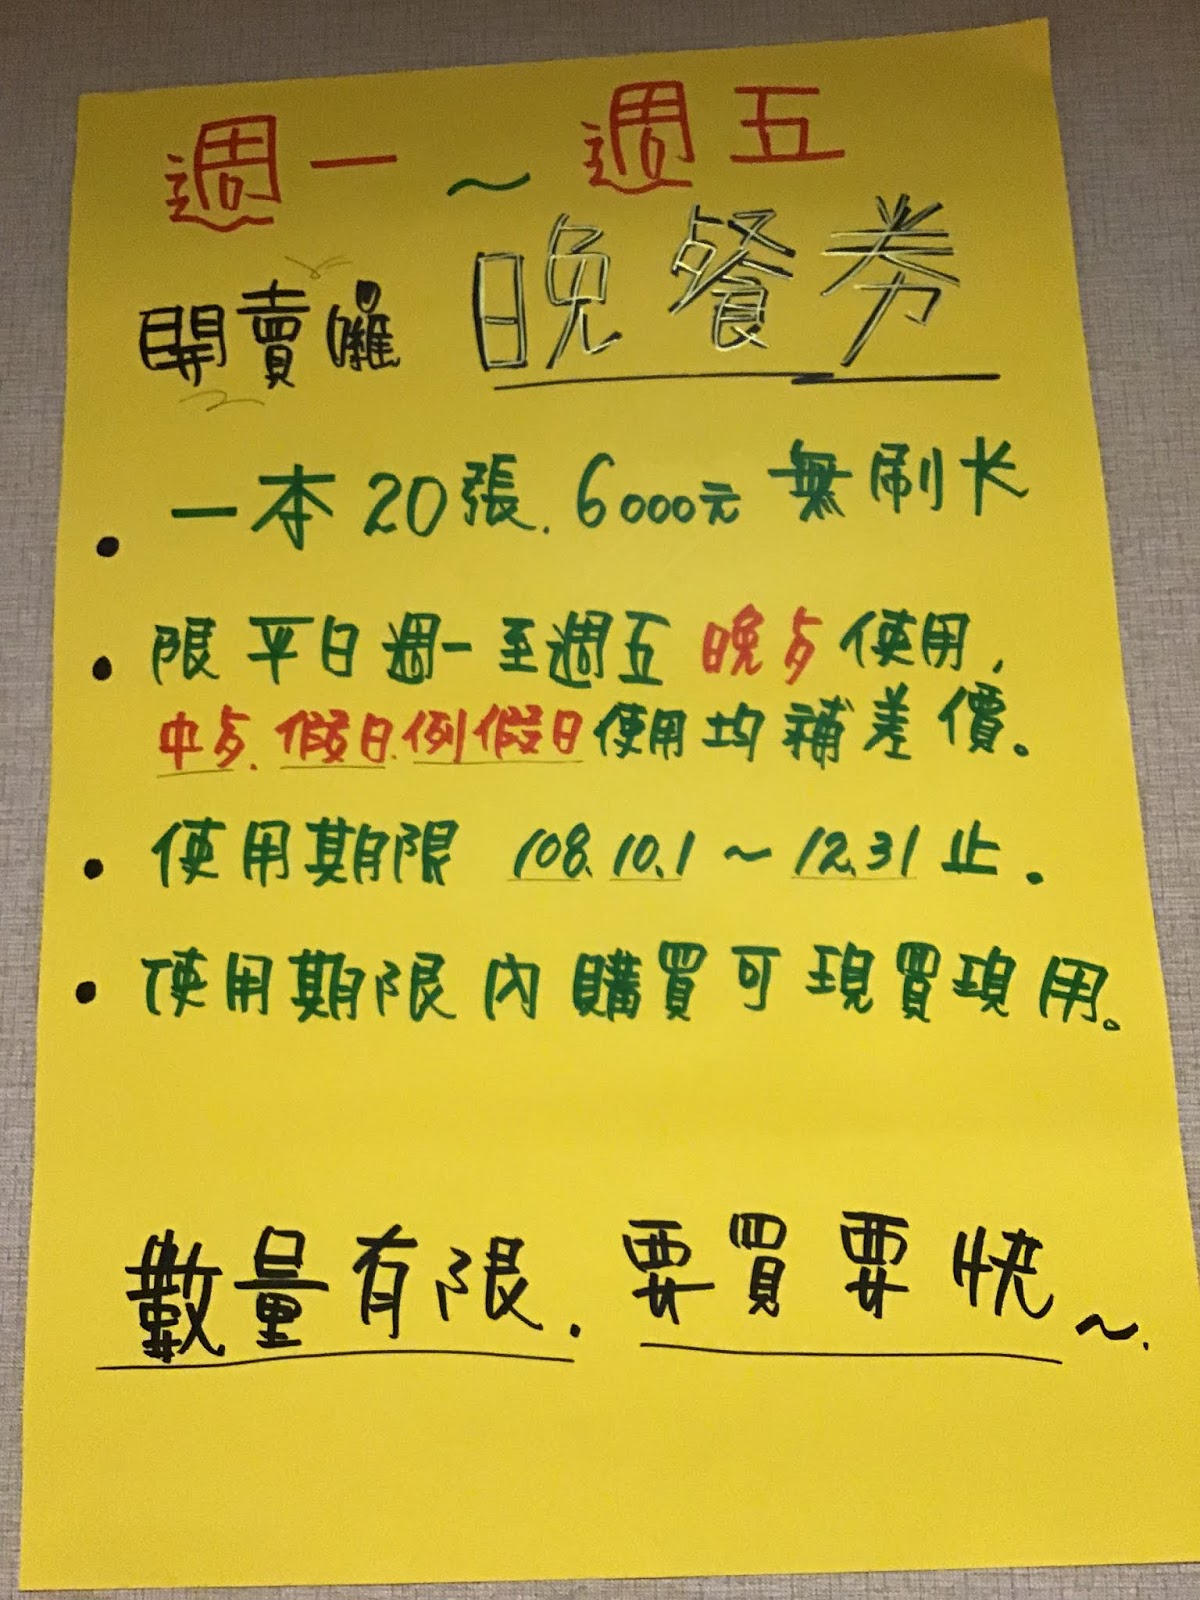 週一～週五
開賣囉 晚餐券
一本20張.6000元 無刷卡
限平日週一至週五晚歺使用,
中歺.假日.例假日使用均補差價。
使用期限 108.10.1～12.31止.
使用期限內購買可現買現用。
數量有限.要買要快～.